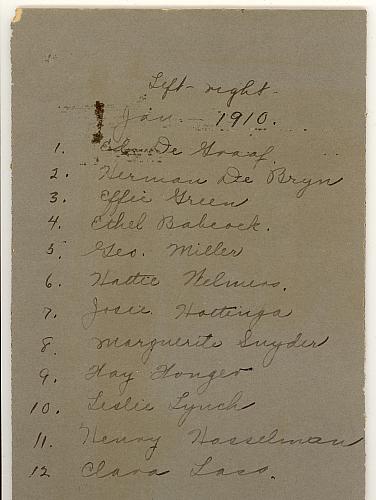 Left - right -
Jan. - 1910.
1. De Graaf
2. Herman De Bryn
3. Effie Green
4. Ethel Babcock.
5. Geo. Miller
6. Hattie Welmers.
7. Josie Hottinga
8. Marguerite Snyder
9. Hay Honger
10. Leslie Lynch
11. Henry Hasselman
12 Clara Lass.